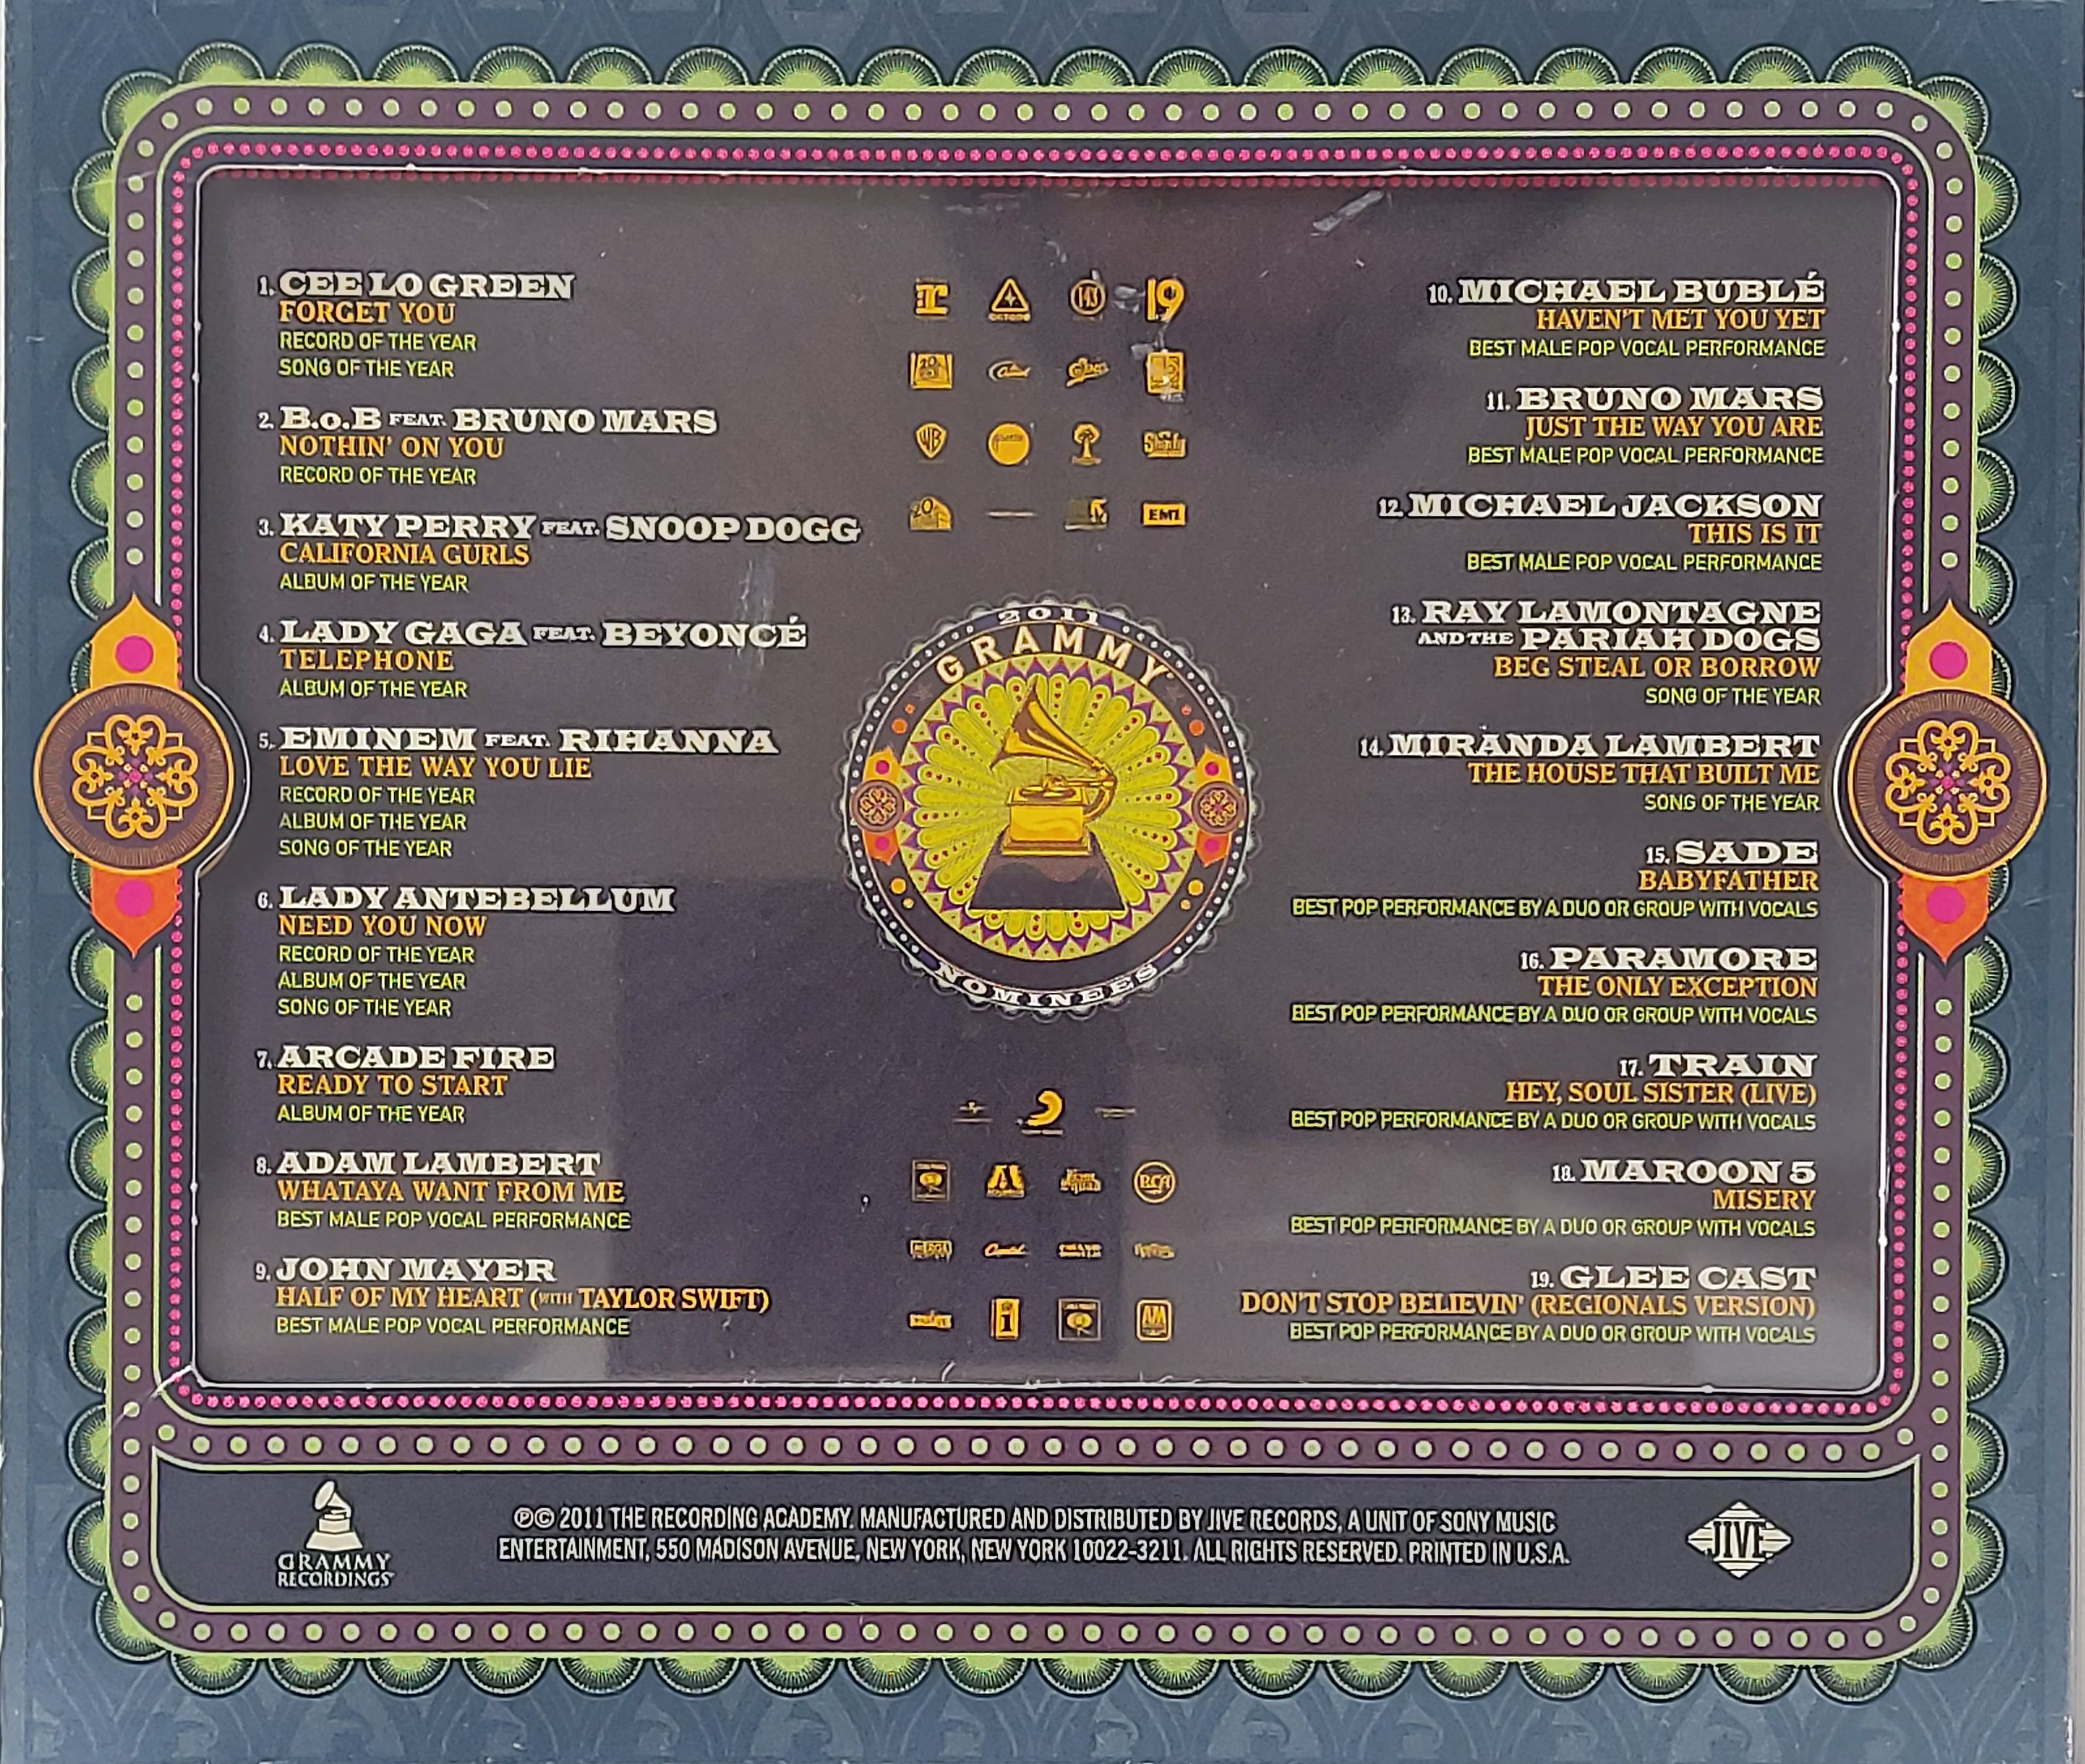 1. CEE LO GREEN
FORGET YOU
RECORD OF THE YEAR
SONG OF THE YEAR
2. B.o.B FEAT. BRUNO MARS
NOTHIN' ON YOU
RECORD OF THE YEAR
3. KATY PERRY FEAT. SNOOP DOGG
CALIFORNIA GURLS
ALBUM OF THE YEAR
4. LADY GAGA FEAT. BEYONCÉ
TELEPHONE
ALBUM OF THE YEAR
5. EMINEM FEAT. RIHANNA
LOVE THE WAY YOU LIE
RECORD OF THE YEAR
ALBUM OF THE YEAR
SONG OF THE YEAR
6. LADY ANTEBELLUM
NEED YOU NOW
RECORD OF THE YEAR
ALBUM OF THE YEAR
SONG OF THE YEAR
7. ARCADE FIRE
READY TO START
ALBUM OF THE YEAR
8. ADAM LAMBERT
WHATAYA WANT FROM ME
BEST MALE POP VOCAL PERFORMANCE
9. JOHN MAYER
HALF OF MY HEART (WITH TAYLOR SWIFT)
BEST MALE POP VOCAL PERFORMANCE
143 19
Capitol Epic
WB
EMI
2011
GRAMMY
NOMINEES
RCA
Capitol
A&M
10. MICHAEL BUBLÉ
HAVEN'T MET YOU YET
BEST MALE POP VOCAL PERFORMANCE
11. BRUNO MARS
JUST THE WAY YOU ARE
BEST MALE POP VOCAL PERFORMANCE
12. MICHAEL JACKSON
THIS IS IT
BEST MALE POP VOCAL PERFORMANCE
13. RAY LAMONTAGNE
AND THE PARIAH DOGS
BEG STEAL OR BORROW
SONG OF THE YEAR
14. MIRANDA LAMBERT
THE HOUSE THAT BUILT ME
SONG OF THE YEAR
15. SADE
BABYFATHER
BEST POP PERFORMANCE BY A DUO OR GROUP WITH VOCALS
16. PARAMORE
THE ONLY EXCEPTION
BEST POP PERFORMANCE BY A DUO OR GROUP WITH VOCALS
17. TRAIN
HEY, SOUL SISTER (LIVE)
BEST POP PERFORMANCE BY A DUO OR GROUP WITH VOCALS
18. MAROON 5
MISERY
BEST POP PERFORMANCE BY A DUO OR GROUP WITH VOCALS
19. GLEE CAST
DON'T STOP BELIEVIN' (REGIONALS VERSION)
BEST POP PERFORMANCE BY A DUO OR GROUP WITH VOCALS
GRAMMY
RECORDINGS
℗© 2011 THE RECORDING ACADEMY. MANUFACTURED AND DISTRIBUTED BY JIVE RECORDS, A UNIT OF SONY MUSIC
ENTERTAINMENT, 550 MADISON AVENUE, NEW YORK, NEW YORK 10022-3211. ALL RIGHTS RESERVED. PRINTED IN U.S.A.
JIVE